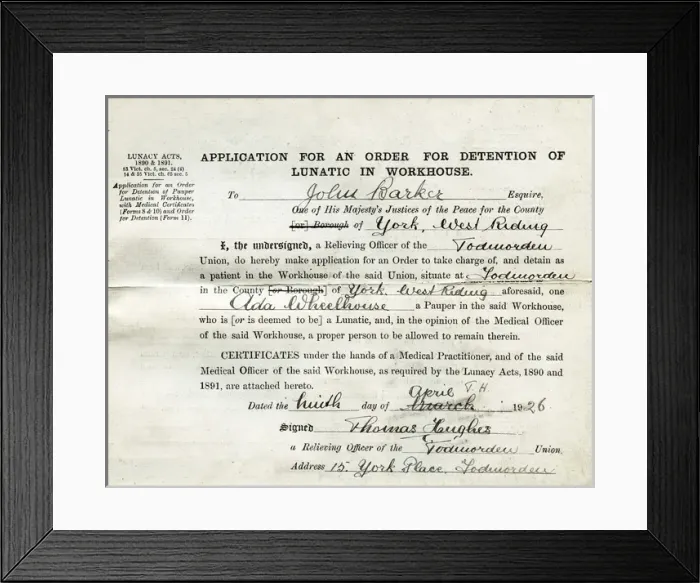 LUNACY ACTS,
1890 & 1891.
53 Vict. ch. 5, sec. 24 (4)
54 & 55 Vict. ch. 65 sec. 5
Application for an Order
for Detention of Pauper
Lunatic in Workhouse,
with Medical Certificates
(Forms 8 & 10) and Order
for Detention (Form 11).
APPLICATION FOR AN ORDER FOR DETENTION OF
LUNATIC IN WORKHOUSE.
To John Barker Esquire,
One of His Majesty's Justices of the Peace for the County
[or] Borough of York, West Riding
I, the undersigned, a Relieving Officer of the Todmorden
Union, do hereby make application for an Order to take charge of, and detain as
a patient in the Workhouse of the said Union, situate at Todmorden
in the County [or Borough] of York, West Riding aforesaid, one
Ada Wheelhouse a Pauper in the said Workhouse,
who is [or is deemed to be] a Lunatic, and, in the opinion of the Medical Officer
of the said Workhouse, a proper person to be allowed to remain therein.
CERTIFICATES under the hands of a Medical Practitioner, and of the said
Medical Officer of the said Workhouse, as required by the Lunacy Acts, 1890 and
1891, are attached hereto.
April T.H
Dated the ninth day of March 1926
Signed Thomas Hughes
a Relieving Officer of the Todmorden Union,
Address 15, York Place, Todmorden